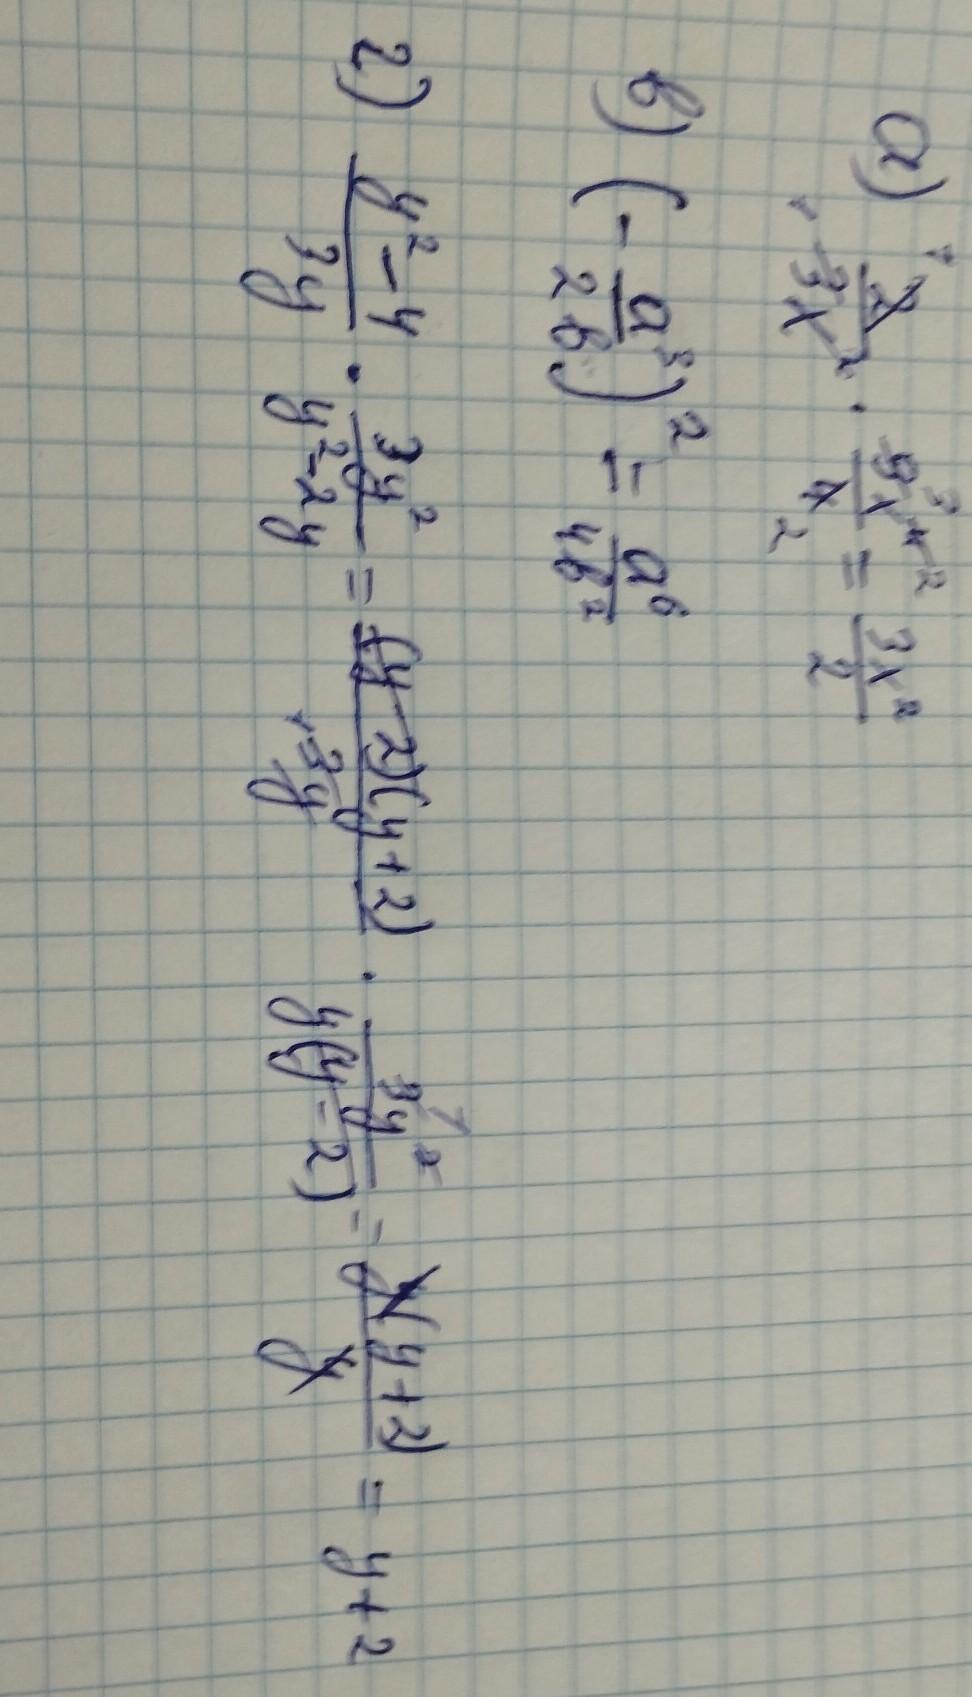 а) 2/3x² · 9x⁴/4 = 3x²/2
в) (- a³/2b)² = a⁶/4b²
г) y² - 4/3y · 3y²/y² - 2y = (y - 2)(y + 2)/3y · 3y²/y(y - 2) = y(y + 2)/y = y + 2